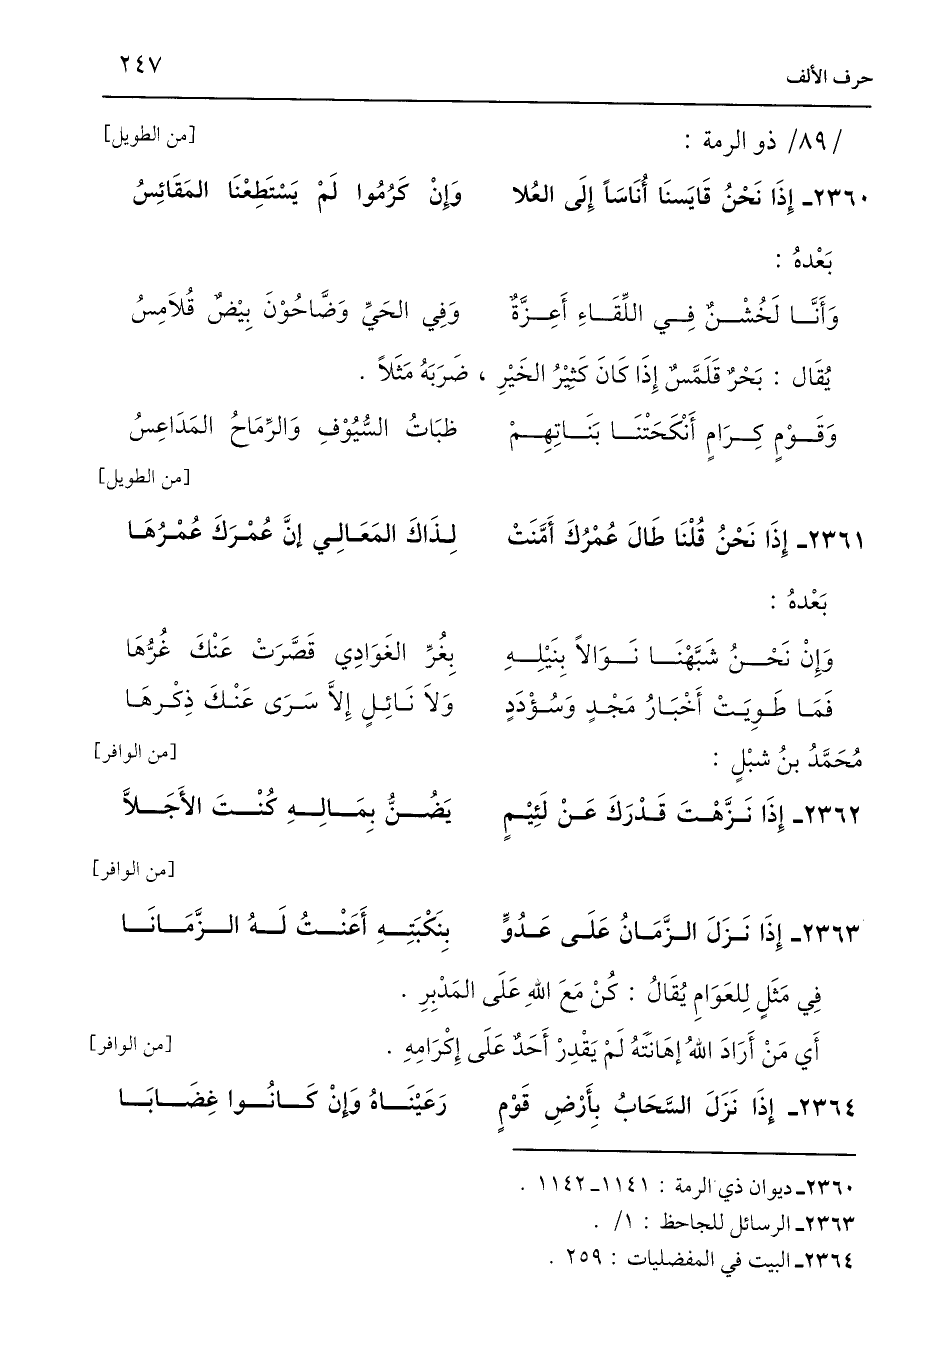 حرف الألف ٢٤٧
/٨٩/ ذو الرمة : [من الطويل]
٢٣٦٠ـ إِذَا نَحْنُ قَايَسنَا أُنَاسَاً إِلَى العُلا وَإِنْ كَرُمُوا لَمْ يَسْتَطِعْنَا المَقَائِسُ
بَعْدهُ :
وَأَنَّا لَخُشْنٌ فِي اللِّقَاءِ أَعِزَّةٌ وَفِي الحَيِّ وَضَّاحُوْنَ بِيْضٌ قُلاَمِسُ
يُقَال : بَحْرٌ قَلَمَّسٌ إِذَا كَانَ كَثِيْرُ الخَيْرِ ، ضَرَبَهُ مَثَلاً .
وَقَوْمٍ كِرَامٍ أَنْكَحَتْنَا بَنَاتِهِمْ ظبَاتُ السُّيُوْفِ وَالرِّمَاحُ المَدَاعِسُ
[من الطويل]
٢٣٦١ـ إِذَا نَحْنُ قُلْنَا طَالَ عُمْرُكَ أَمَّنَتْ لِذَاكَ المَعَالِي إِنَّ عُمْرَكَ عُمْرُهَا
بَعْدهُ :
وَإِنْ نَحْنُ شَبَّهْنَا نَوَالاً بِنَيْلِهِ بِغُرِّ الغَوَادِي قَصَّرَتْ عَنْكَ غُرُّهَا
فَمَا طَوِيَتْ أَخْبَارُ مَجْدٍ وَسُؤْدَدٍ وَلاَ نَائِلٍ إِلاَّ سَرَى عَنْكَ ذِكْرهَا
مُحَمَّدُ بنُ شبْلٍ : [من الوافر]
٢٣٦٢ـ إِذَا نَزَّهْتَ قَدْرَكَ عَنْ لَئِيْمٍ يَضُنُّ بِمَالِهِ كُنْتَ الأَجَلاَّ
[من الوافر]
٢٣٦٣ـ إِذَا نَزَلَ الزَّمَانُ عَلَى عَدُوٍّ بِنَكْبَتِهِ أَعَنْتُ لَهُ الزَّمَانَا
فِي مَثَلٍ لِلعَوَامِ يُقَالُ : كُنْ مَعَ اللهِ عَلَى المَدْبِرِ .
أَي مَنْ أَرَادَ اللهُ إهَانَتَهُ لَمْ يَقْدِرْ أَحَدٌ عَلَى إِكْرَامِهِ . [من الوافر]
٢٣٦٤ـ إِذَا نَزَلَ السَّحَابُ بِأَرْضِ قَوْمٍ رَعَيْنَاهُ وَإِنْ كَانُوا غِضَابَا
٢٣٦٠ـ ديوان ذي الرمة : ١١٤١ـ١١٤٢ .
٢٣٦٣ـ الرسائل للجاحظ : ١/ .
٢٣٦٤ـ البيت في المفضليات : ٢٥٩ .